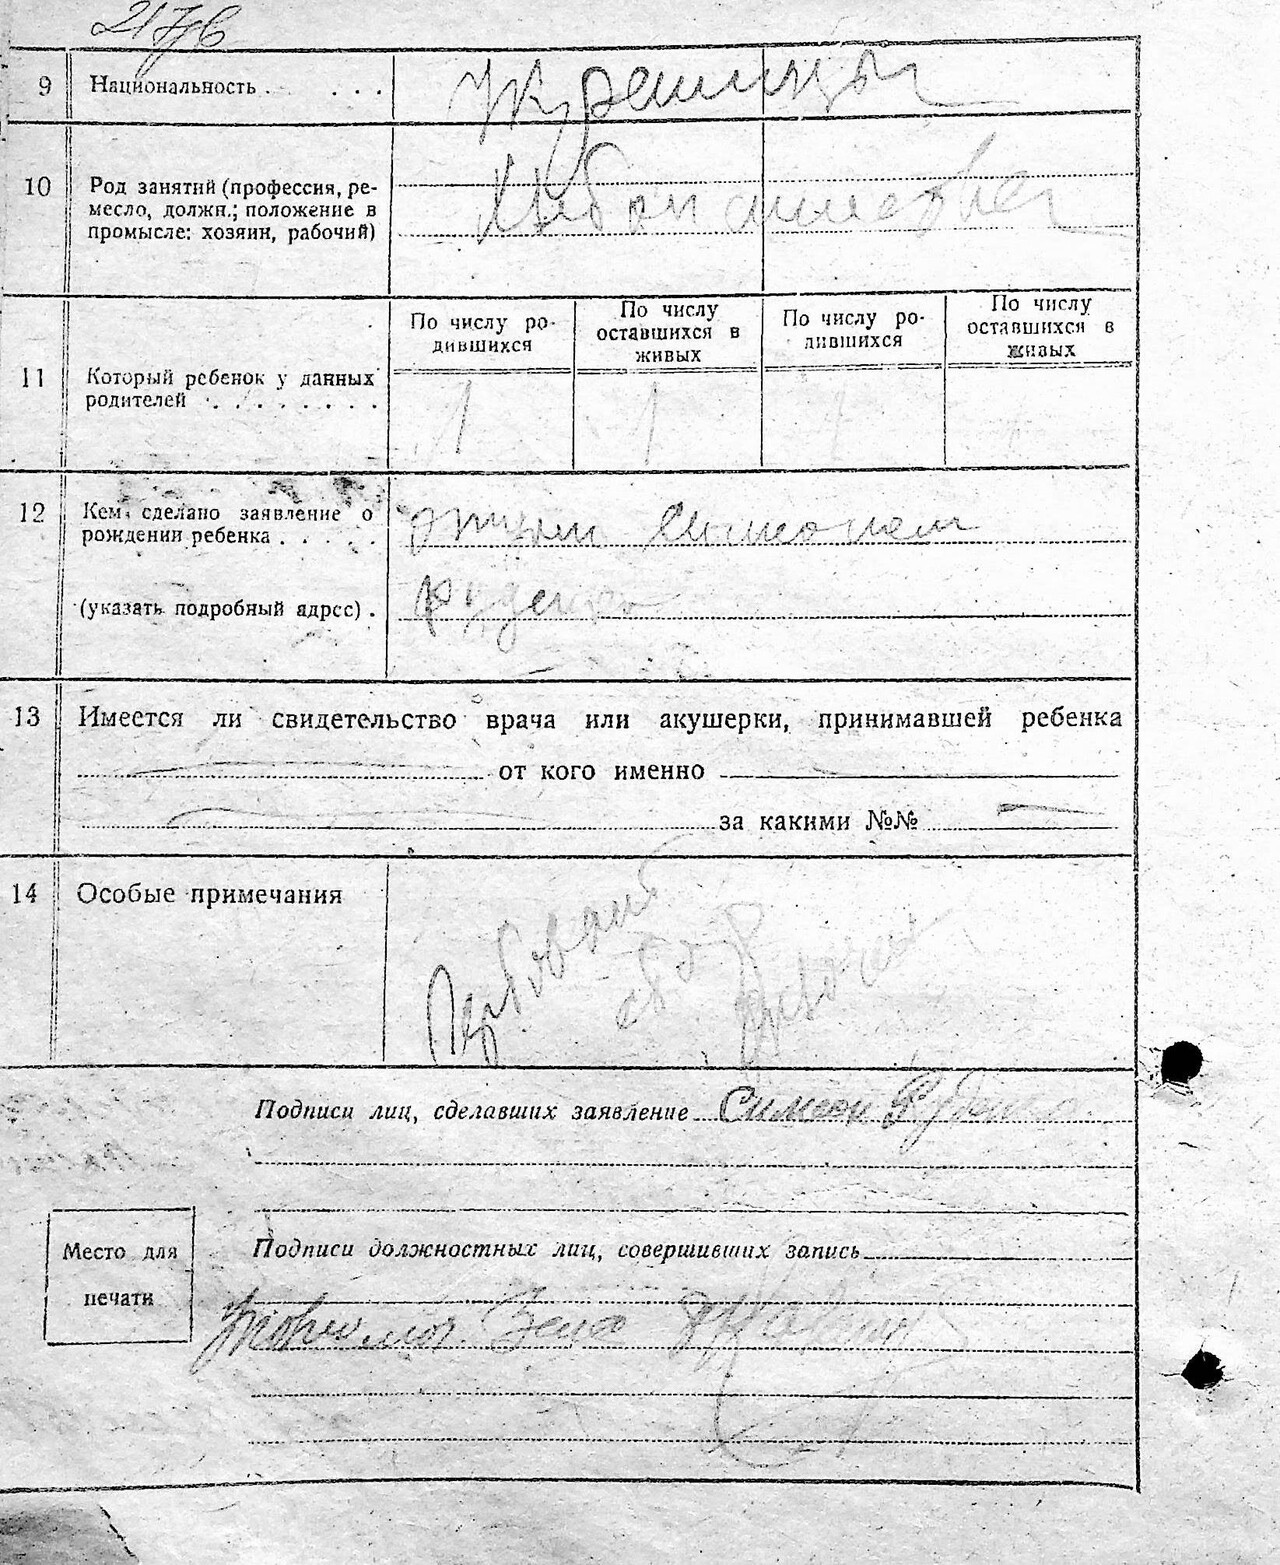 9 Национальность . . . . Украинцы
10 Род занятий (профессия, ре-
месло, должн.; положение в
промысле: хозяин, рабочий)
По числу ро-
дившихся
По числу
оставшихся в
живых
По числу ро-
дившихся
По числу
оставшихся в
живых
11 Который ребенок у данных
родителей . . . . . . . . 1 1
12 Кем сделано заявление о
рождении ребенка . . . . .
(указать подробный адрес) . Руденко
13 Имеется ли свидетельство врача или акушерки, принимавшей ребенка
от кого именно
за какими №№
14 Особые примечания
Подписи лиц, сделавших заявление Симеон Руденко
Подписи должностных лиц, совершивших запись
Место для
печати